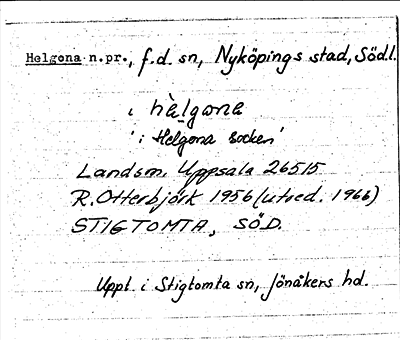 Helgona n.pr., f.d. sn, Nyköpings stad, Södl.
i hèlgona
'i Helgona socken'
Landsm. Uppsala 26515
R. Otterbjörk 1956 (utred. 1966)
STIGTOMTA, SÖD.
Uppt. i Stigtomta sn, Jönåkers hd.